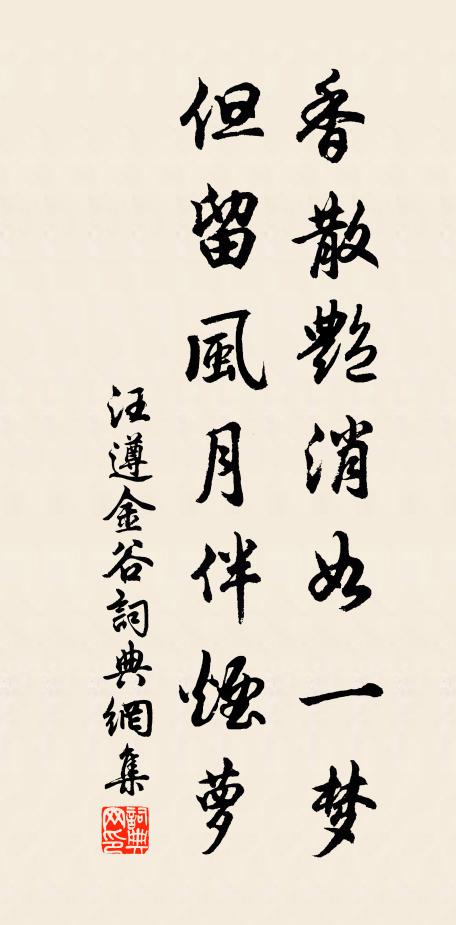 香散艷消如一梦
但留風月伴煙萝
汪遵金谷詞典網集
詞典网印